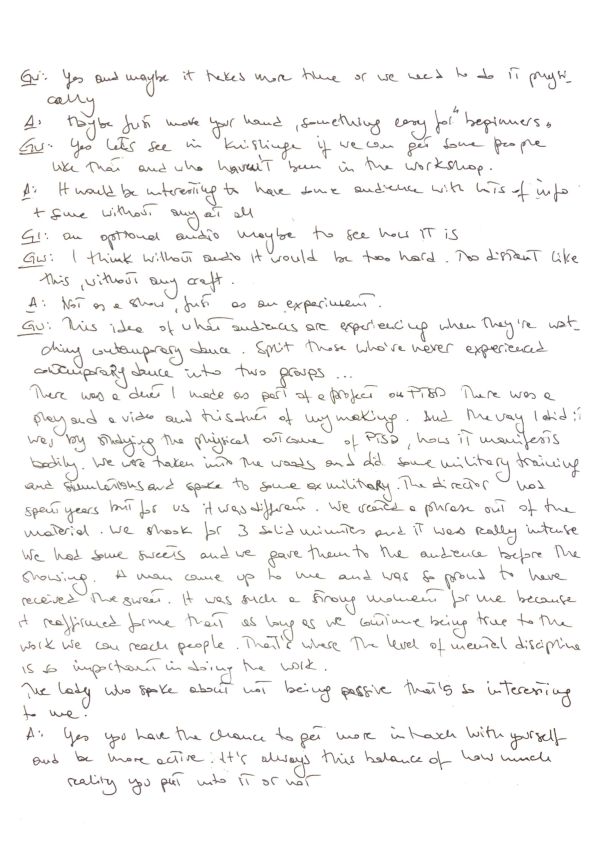 Gv: Yes and maybe it takes more time or we need to do it physi-
cally
A: Maybe just move your hand, something easy for "beginners."
Gv: Yes let's see in if we can get some people
like that and who haven't been in the workshop.
A: It would be interesting to have some audience with lots of info
+ some without any at all
an optional audio maybe to see how it is
Gv: I think without audio it would be too hard. Too distant like
this, without any craft.
A: Not as a show, just as an experiment.
Gv: This idea of what audiences are experiencing when they're wat-
ching contemporary dance. Split those who've never experienced
contemporary dance into two groups ...
There was a duet I made as part of a project on PTSD There was a
play and a video and this duet of my making. And the way I did it
was by studying the physical outcome of PTSD, how it manifests
bodily. We were taken into the woods and did some military training
and simulations and spoke to some ex military. The director had
spent years but for us it was different. We created a phrase out of the
material. We shook for 3 solid minutes and it was really intense
We had some sweets and we gave them to the audience before the
showing. A man came up to me and was so proud to have
received the sweet. It was such a strong moment for me because
it reaffirmed for me that as long as we continue being true to the
work we can reach people. That's where the level of mental discipline
is so important in doing the work.
The lady who spoke about not being passive that's so interesting
to me.
A: Yes you have the chance to get more in touch with yourself
and be more active. It's always this balance of how much
reality you put into it or not